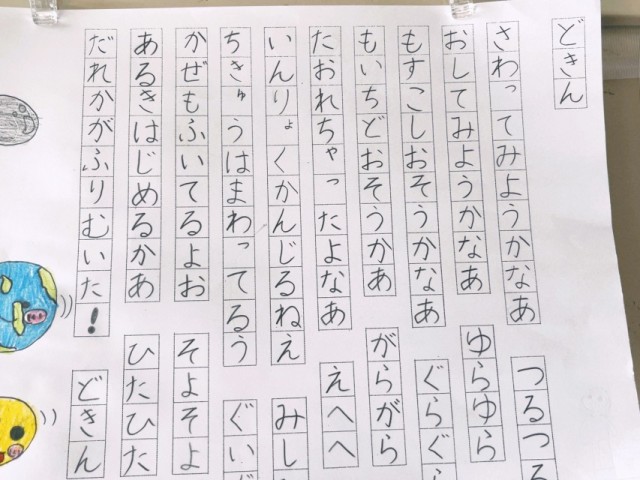 どきん
さわってみようかなあ　つるつる
おしてみようかなあ　ゆらゆら
もすこしおそうかなあ　ぐらぐら
もいちどおそうかあ　がらがら
たおれちゃったよなあ　えへへ
いんりょくかんじるねえ　みし
ちきゅうはまわってるう　ぐい
かぜもふいてるよお　そよそよ
あるきはじめるかあ　ひたひた
だれかがふりむいた！　どきん